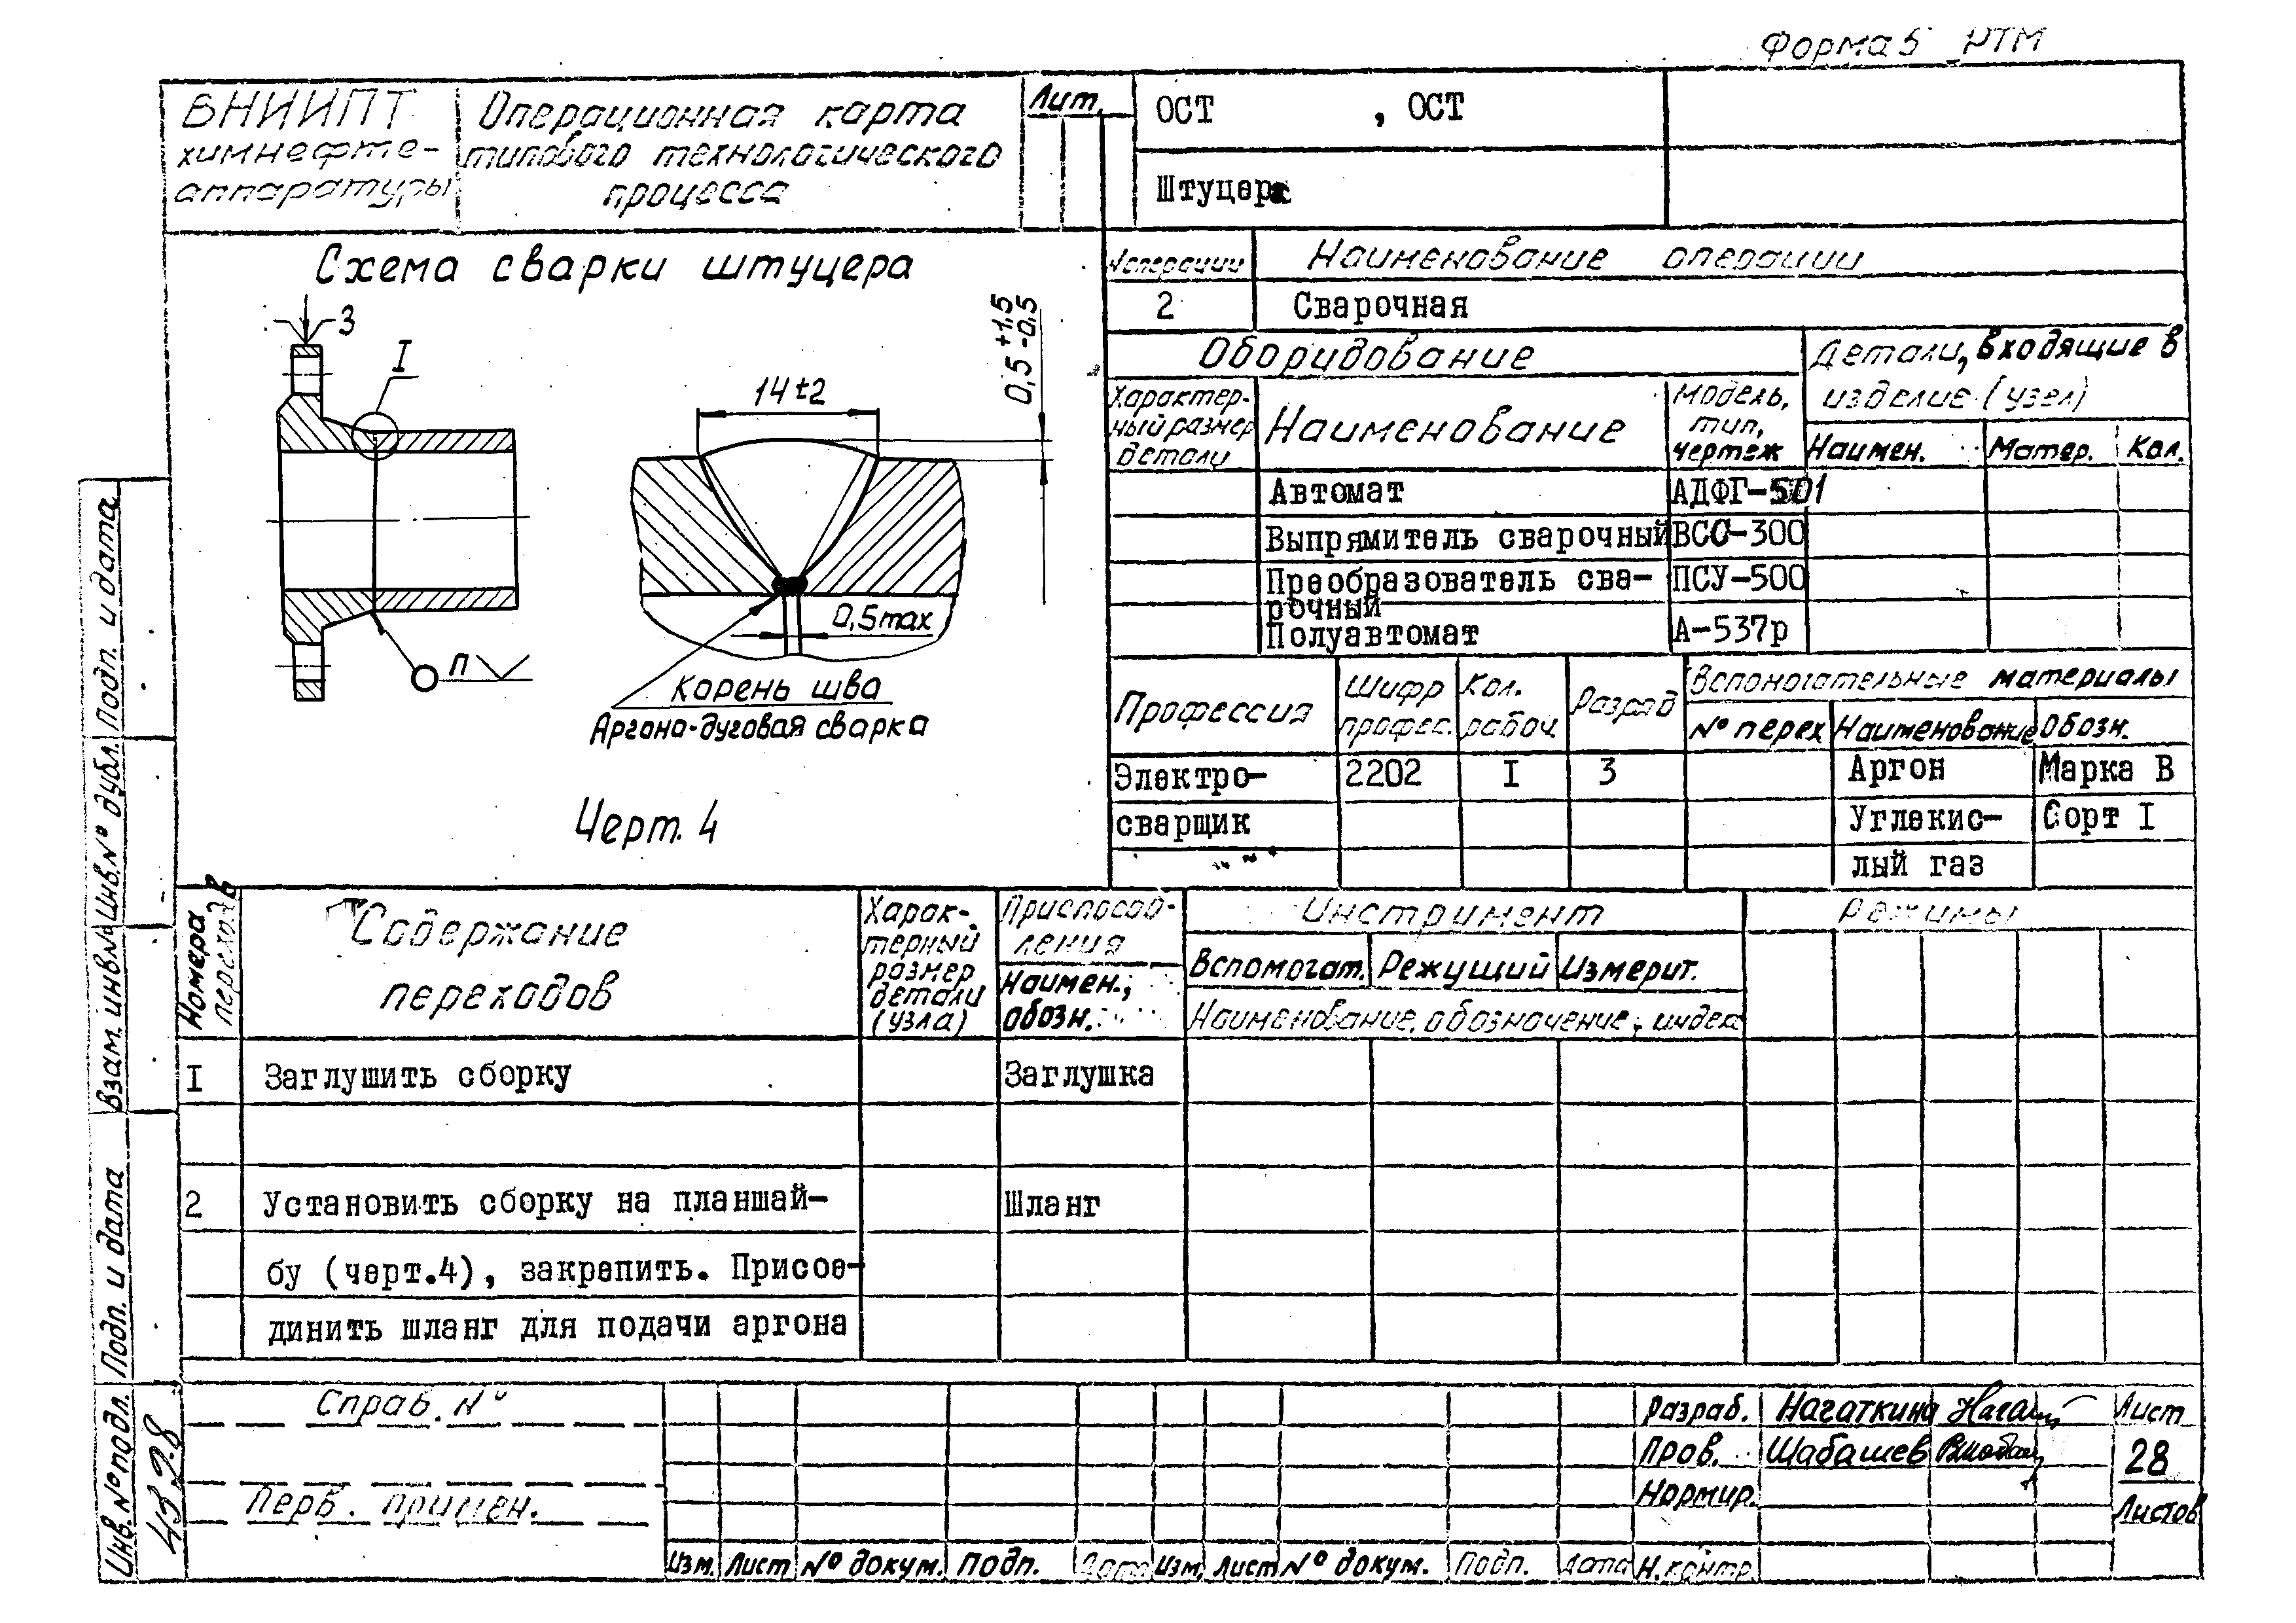 Форма 5 РТМ
ВНИИПТ
химнефте-
аппаратуры
Операционная карта
типового технологического
процесса
Лит.
ОСТ , ОСТ
Штуцера
Схема сварки штуцера
3
I
14±2
0,5 +1,5 -0,5
0,5max
П
Корень шва
Аргоно-дуговая сварка
Черт. 4
№ операции
Наименование операции
2
Сварочная
Оборудование
Детали, входящие в
изделие (узел)
Характер-
ный размер
детали
Наименование
Модель,
тип,
чертеж
Наимен.
Матер.
Кол.
Автомат
АДФГ-501
Выпрямитель сварочный
ВСС-300
Преобразователь сва-
рочный
ПСУ-500
Полуавтомат
А-537р
Профессия
Шифр
профес.
Кол.
рабоч.
Разряд
Вспомогательные материалы
№ перех
Наименование
Обозн.
Электро-
2202
I
3
Аргон
Марка В
сварщик
Углекис-
Сорт I
лый газ
Номера
переходов
Содержание
переходов
Харак-
терный
размер
детали
(узла)
Приспособ-
ления
Наимен.,
обозн.
Инструмент
Режимы
Вспомогат.
Режущий
Измерит.
Наименование, обозначение, индекс
I
Заглушить сборку
Заглушка
2
Установить сборку на планшай-
Шланг
бу (черт.4), закрепить. Присое-
динить шланг для подачи аргона
Справ. №
Перв. примен.
Разраб.
Нагаткина
Лист
Пров.
Шабашев
28
Нормир.
Листов
Изм.
Лист
№ докум.
Подп.
Дата
Изм.
Лист
№ докум.
Подп.
Дата
Н.контр.
Подп. и дата
Инв.№ дубл.
Взам. инв.№
Подп. и дата
Инв. № подл.
4398